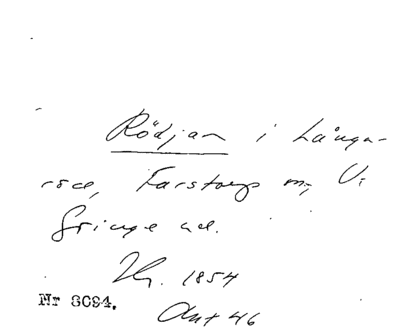 Rödjan i Långa-
röd, Farstorps sn, V.
Göinge hd.
Hg. 1854
Nr 8094. Ant 46